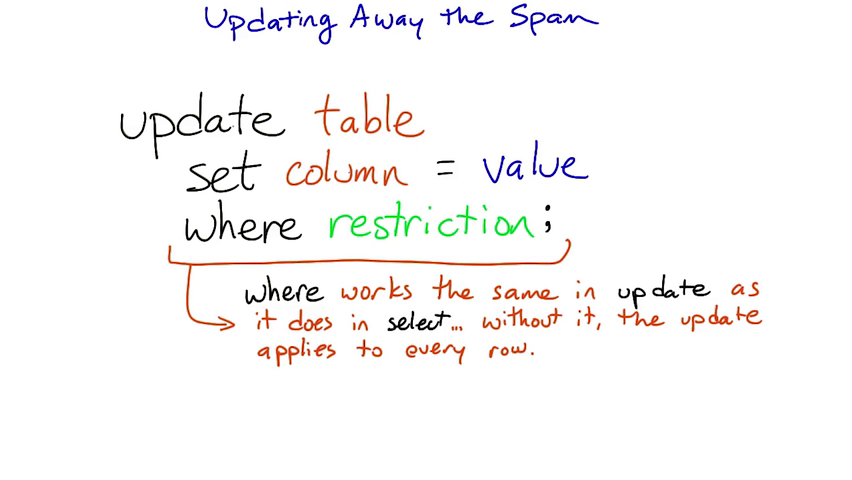 Updating Away the Spam
update table
set column = value
where restriction;
where works the same in update as
it does in select... without it, the update
applies to every row.